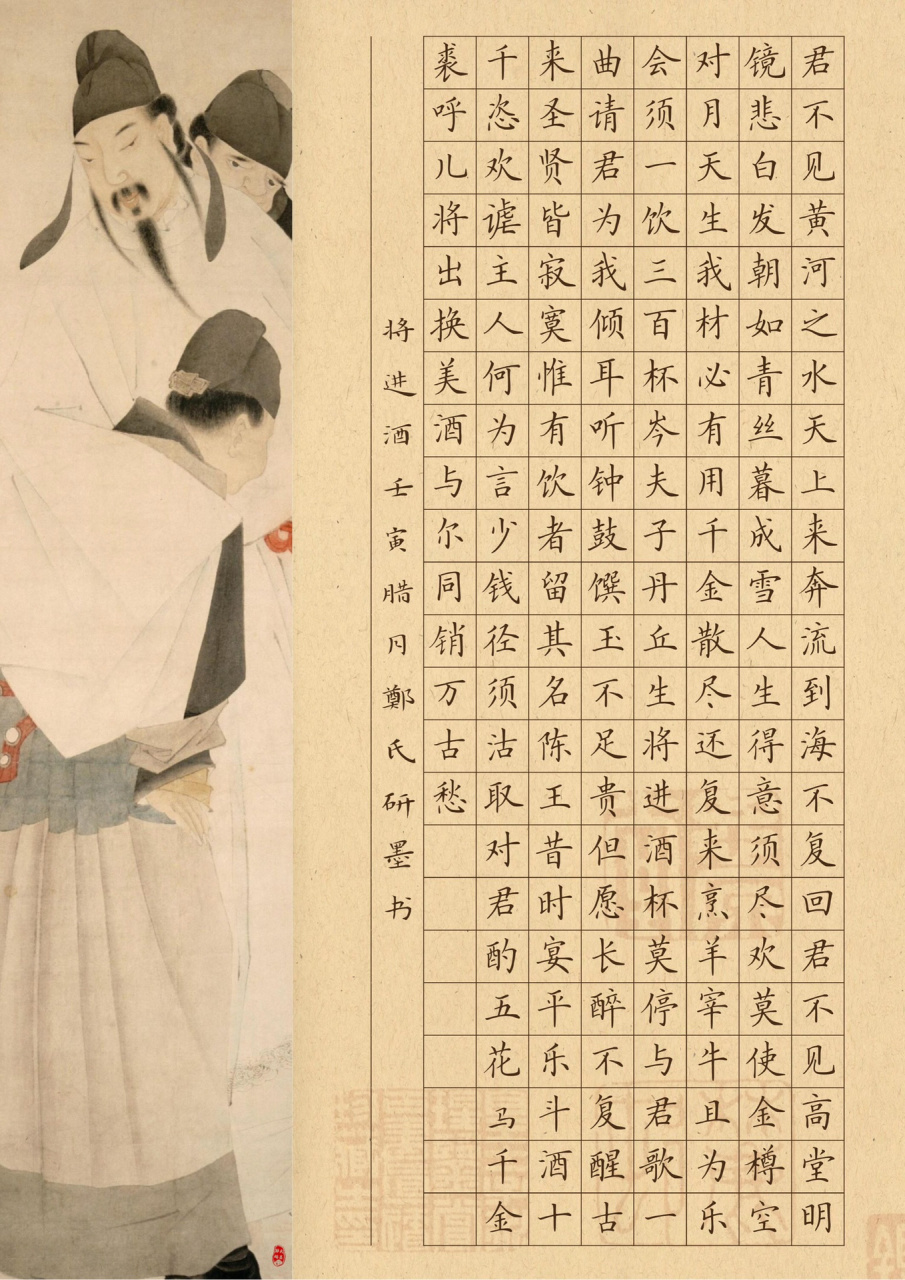 君不见黄河之水天上来奔流到海不复回君不见高堂明
镜悲白发朝如青丝暮成雪人生得意须尽欢莫使金樽空
对月天生我材必有用千金散尽还复来烹羊宰牛且为乐
会须一饮三百杯岑夫子丹丘生将进酒杯莫停与君歌一
曲请君为我倾耳听钟鼓馔玉不足贵但愿长醉不复醒古
来圣贤皆寂寞惟有饮者留其名陈王昔时宴平乐斗酒十
千恣欢谑主人何为言少钱径须沽取对君酌五花马千金
裘呼儿将出换美酒与尔同销万古愁
将进酒壬寅腊月鄭氏研墨书